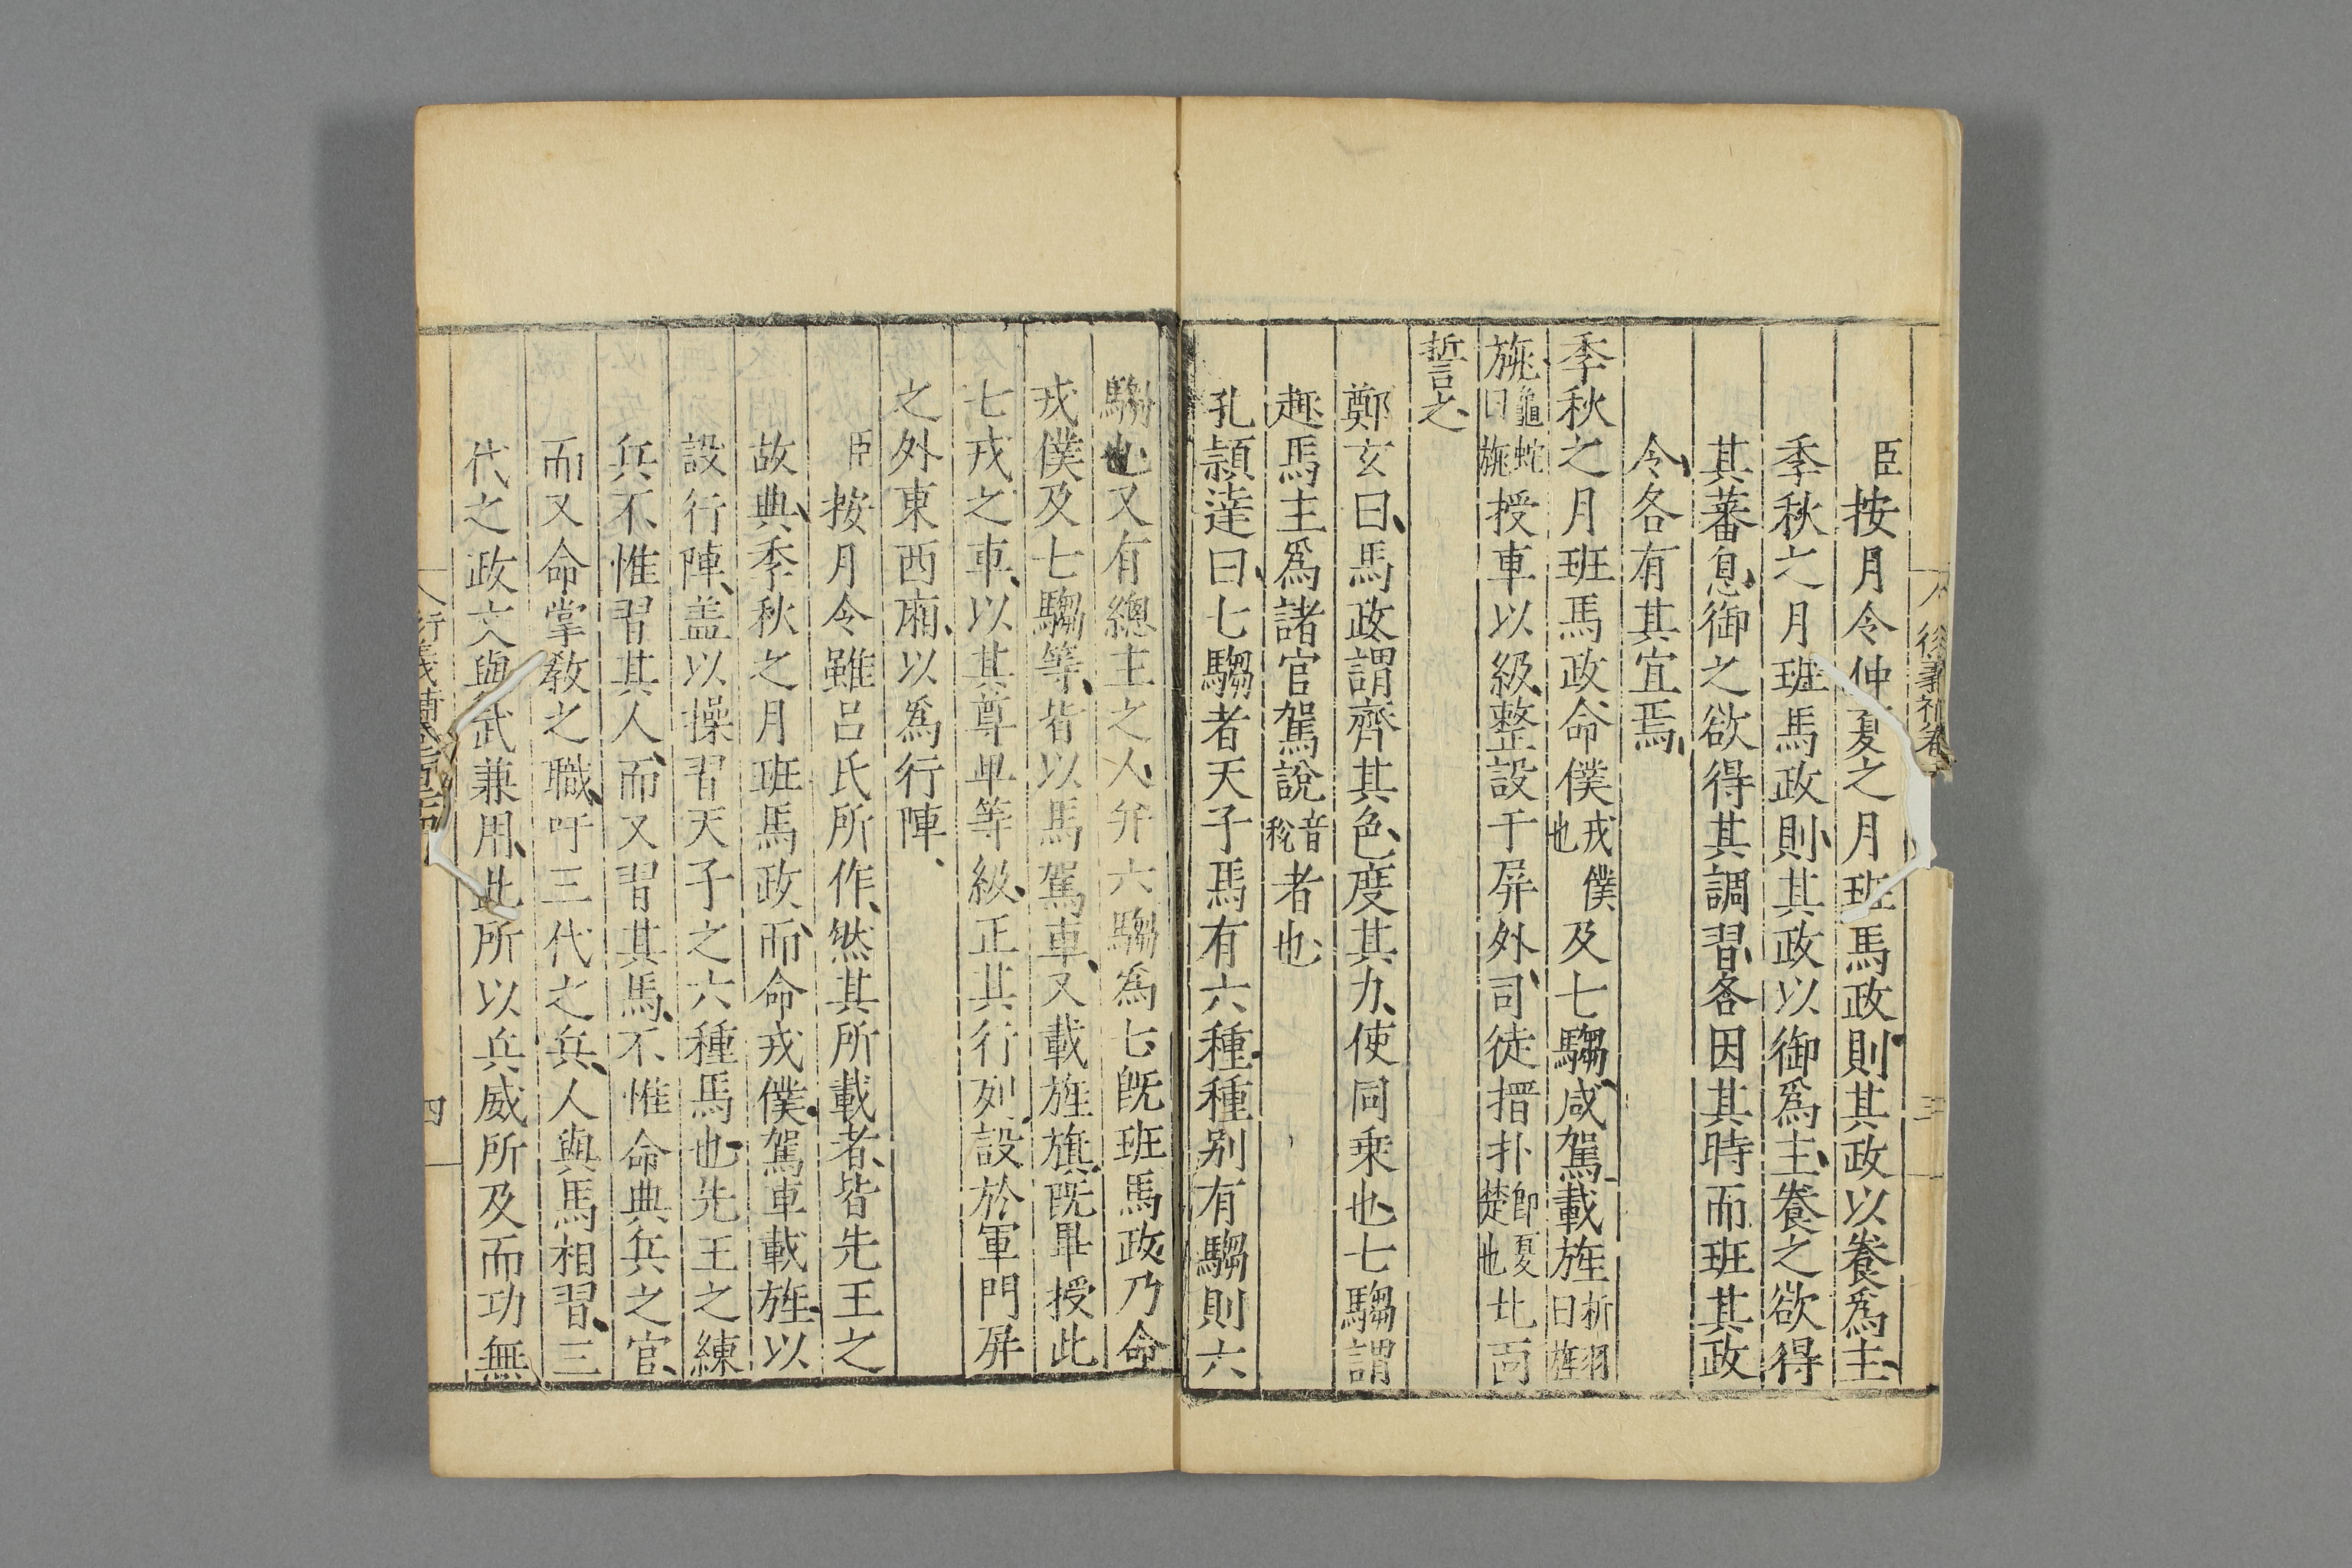 臣按月令仲夏之月班馬政則其政以養爲主
季秋之月班馬政則其政以御爲主養之欲得
其蕃息御之欲得其調習各因其時而班其政
令各有其宜焉
季秋之月班馬政命僕戎僕也及七騶咸駕載旌析羽曰旌
旐龜蛇曰旐授車以級整設于屏外司徒搢扑卽夏楚也北面
誓之
鄭玄曰馬政謂齊其色度其力使同乗也七騶謂
趣馬主爲諸官駕說音稅者也
孔頴達曰七騶者天子馬有六種種别有騶則六
騶也又有總主之人并六騶爲七旣班馬政乃命
戎僕及七騶等皆以馬駕車又載旌旗旣畢授此
七戎之車以其尊卑等級正其行列設於軍門屏
之外東西廂以爲行陣
臣按月令雖呂氏所作然其所載者皆先王之
故典季秋之月班馬政而命戎僕駕車載旌以
設行陣盖以操習天子之六種馬也先王之練
兵不惟習其人而又習其馬不惟命典兵之官
而又命掌敎之職吁三代之兵人與馬相習三
代之政文與武兼用此所以兵威所及而功無
四